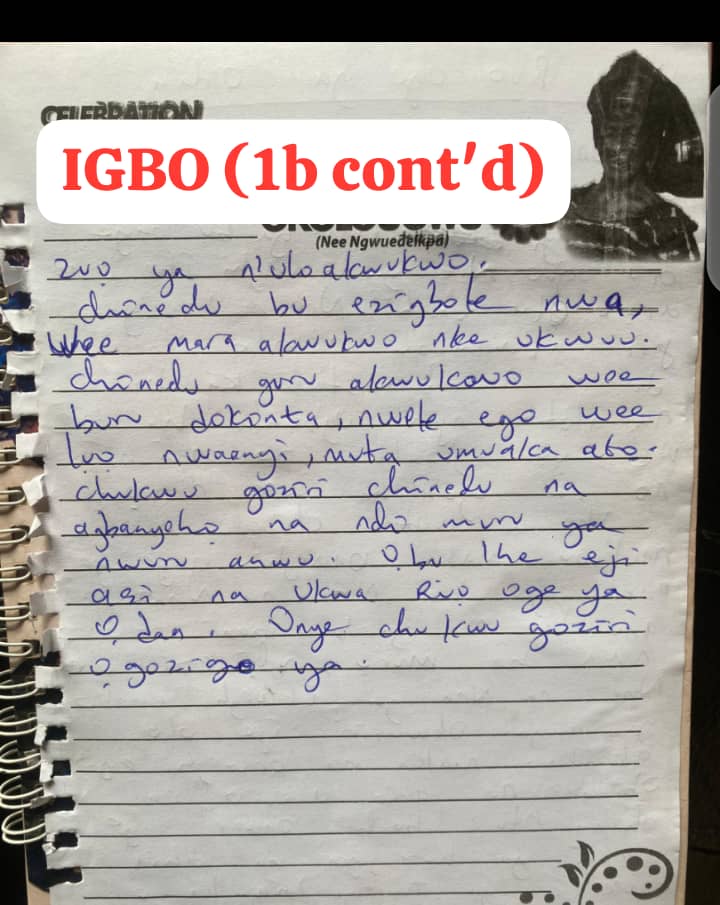 CELEBRATION
IGBO (1b cont'd)
(Nee Ngwuedeikpa)
zuo ya n'ulo akwukwo.
chinedu bu ezigbote nwa,
wee mara akwukwo nke ukwuu.
chinedu guru akwukwo wee
buru dokonta, nwete ego wee
luo nwaanyi, muta umuaka abo.
chukwu goziri chinedu na
agbanyeho na ndi muru ya
nwuru anwu. Obu ihe eji
asi na Ukwa Rio oge ya
O daa. Onye chukwu goziri
O gozigo ya.